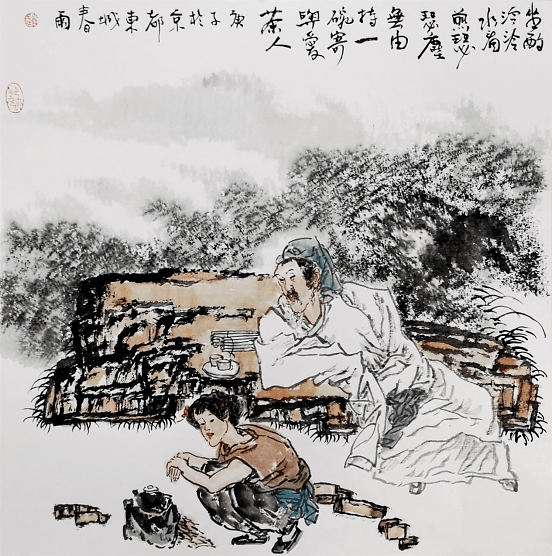 坐酌
泠泠
水看
煎瑟
瑟塵
無由
持一
碗寄
與愛
茶人
庚子於京都東城春雨